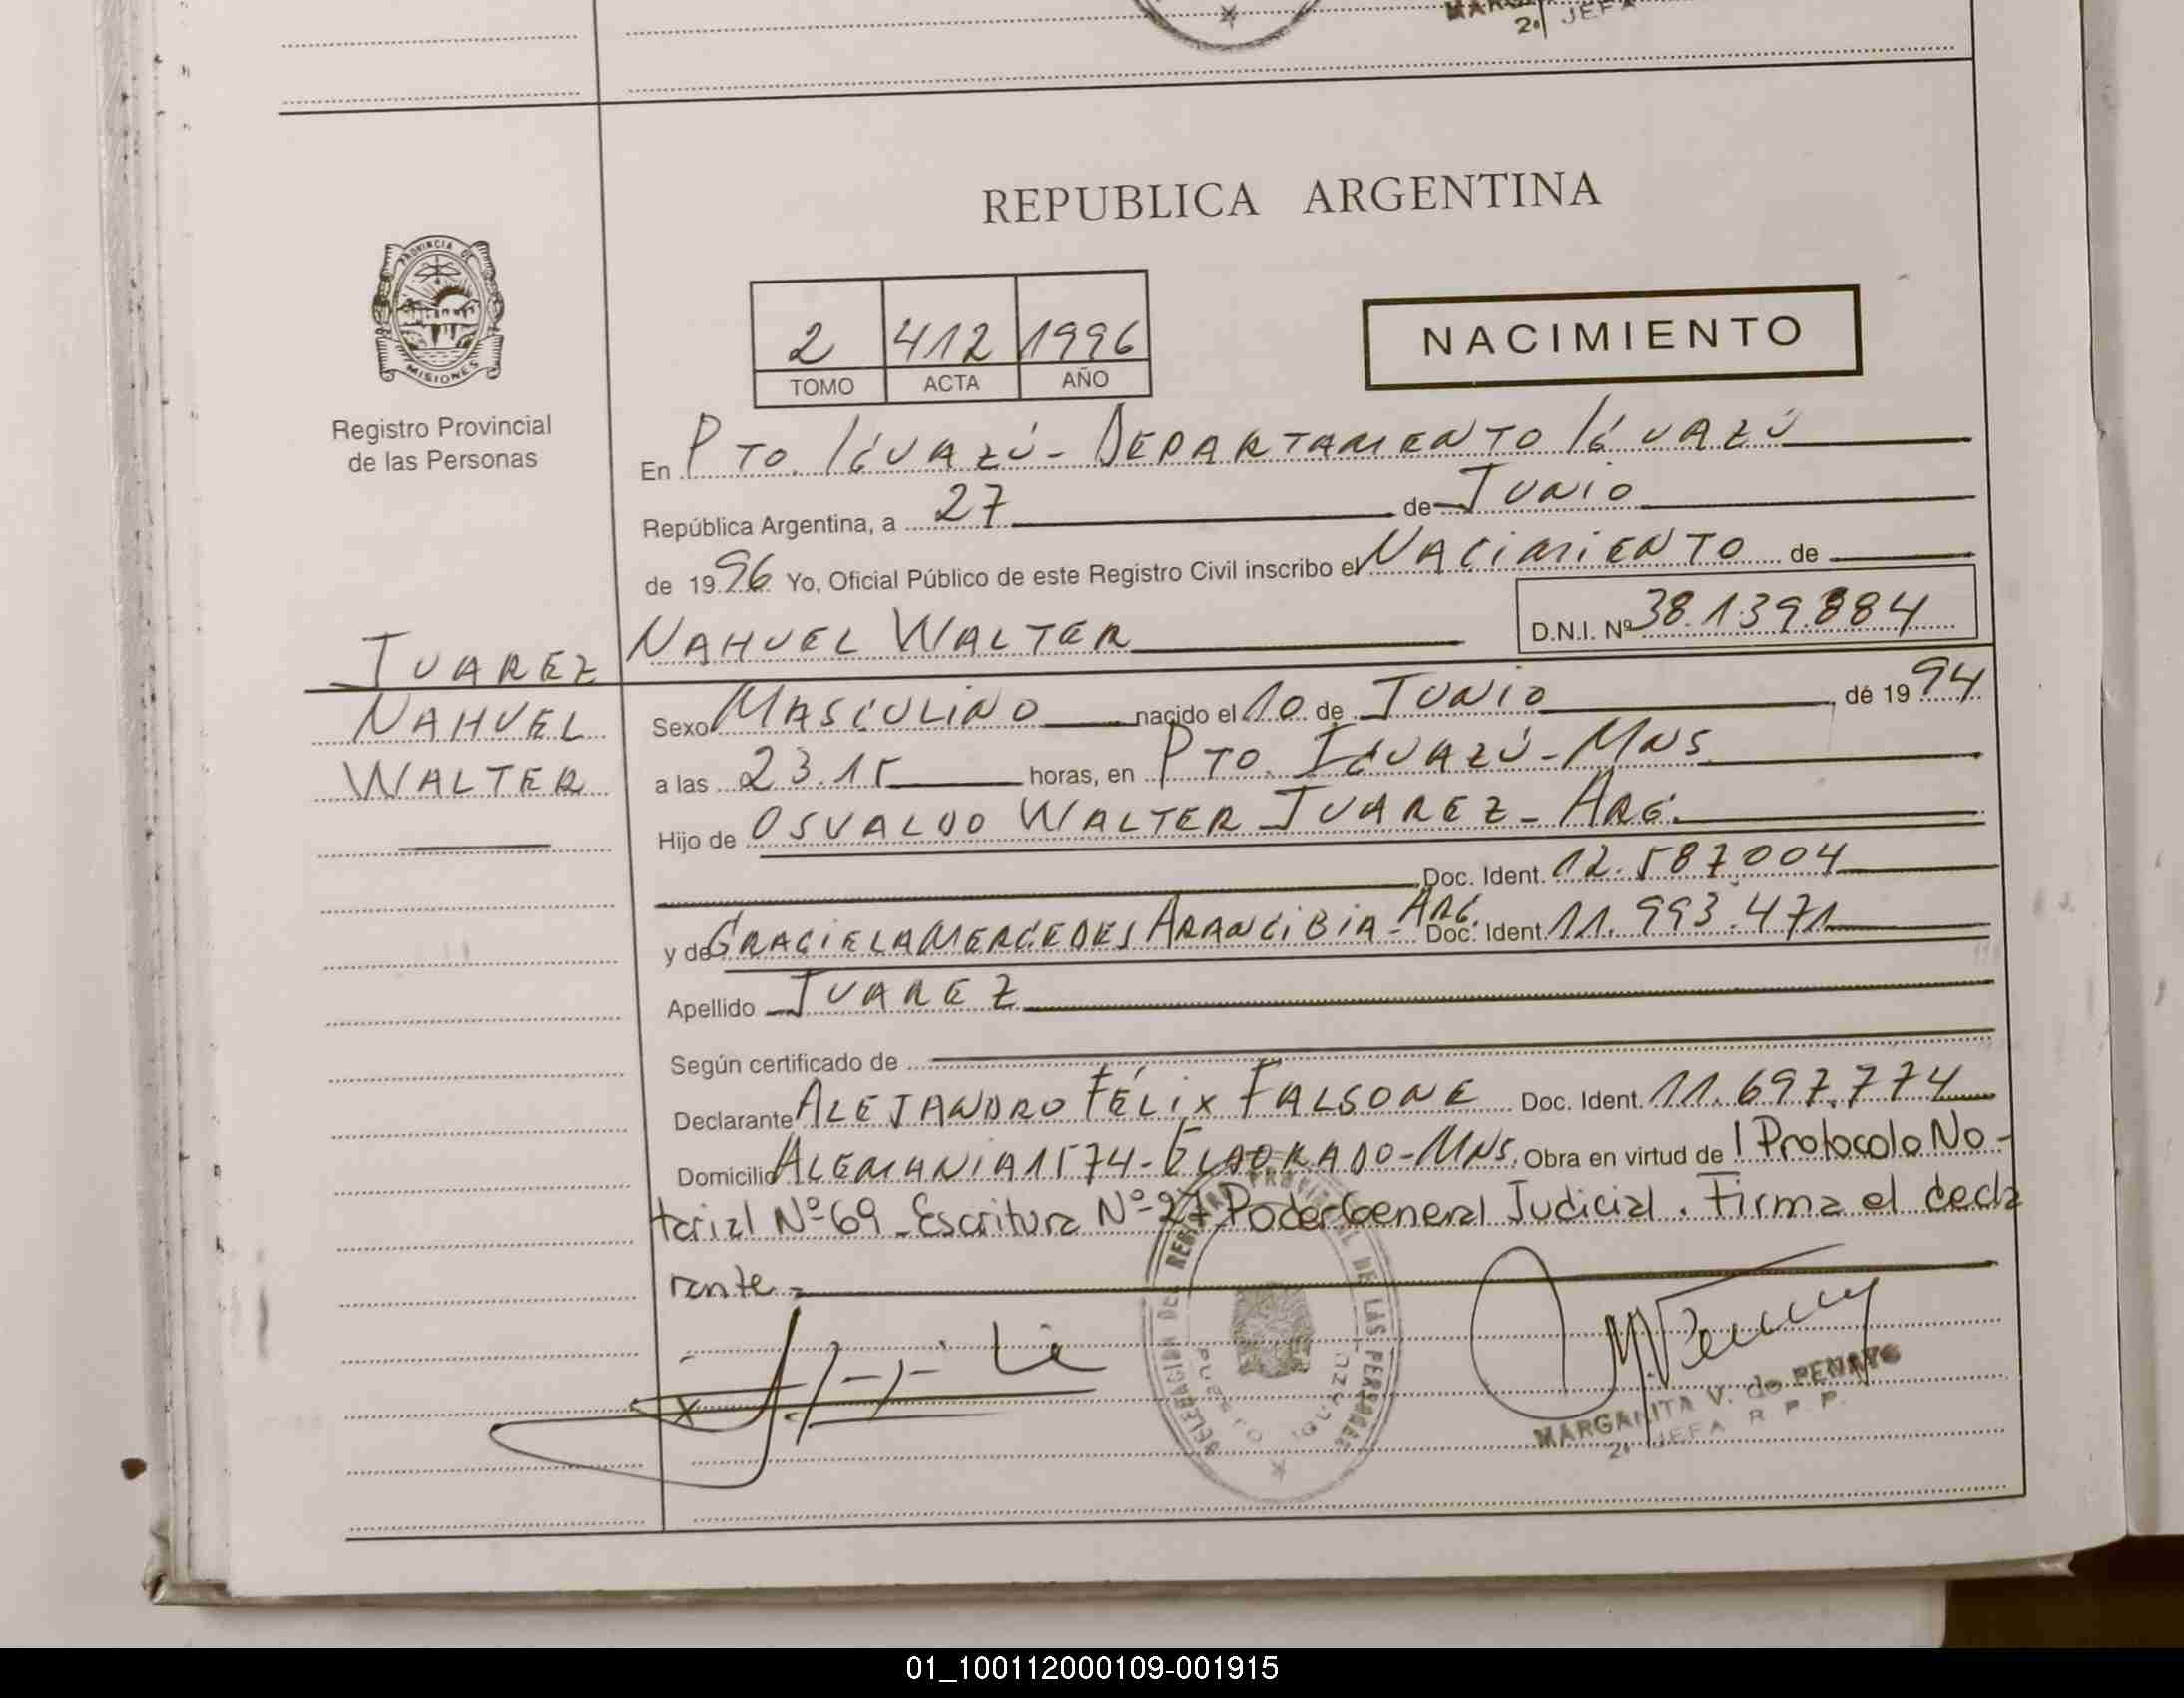 REPUBLICA ARGENTINA
PROVINCIA DE
MISIONES
Registro Provincial
de las Personas
2 412 1996
TOMO ACTA AÑO
NACIMIENTO
En PTO. IGUAZÚ - DEPARTAMENTO IGUAZÚ
República Argentina, a 27 de JUNIO
de 1996 Yo, Oficial Público de este Registro Civil inscribo el NACIMIENTO de
NAHUEL WALTER D.N.I. Nº 38.139.884
JUAREZ
NAHUEL
WALTER
Sexo MASCULINO nacido el 10 de JUNIO de 1994
a las 23.15 horas, en PTO. IGUAZÚ - MNS.
Hijo de OSVALDO WALTER JUAREZ - ARG.
Doc. Ident. 12.587004
y de GRACIELA MERCEDES ARANCIBIA - ARG. Doc. Ident. 11.993.471
Apellido JUAREZ
Según certificado de
Declarante ALEJANDRO FÉLIX FALSONE Doc. Ident. 11.697.774
Domicilio ALEMANIA 1574 - ELDORADO - MNS. Obra en virtud de 1 Protocolo No-
tarial Nº 69 - Escritura Nº 27 Poder General Judicial. Firma el decla
rante.-
DELEGACIÓN DEL REGISTRO PROVINCIAL DE LAS PERSONAS
PUERTO IGUAZU
MARGARITA V. de PENAYO
2ª JEFA R. P. P.
01_100112000109-001915